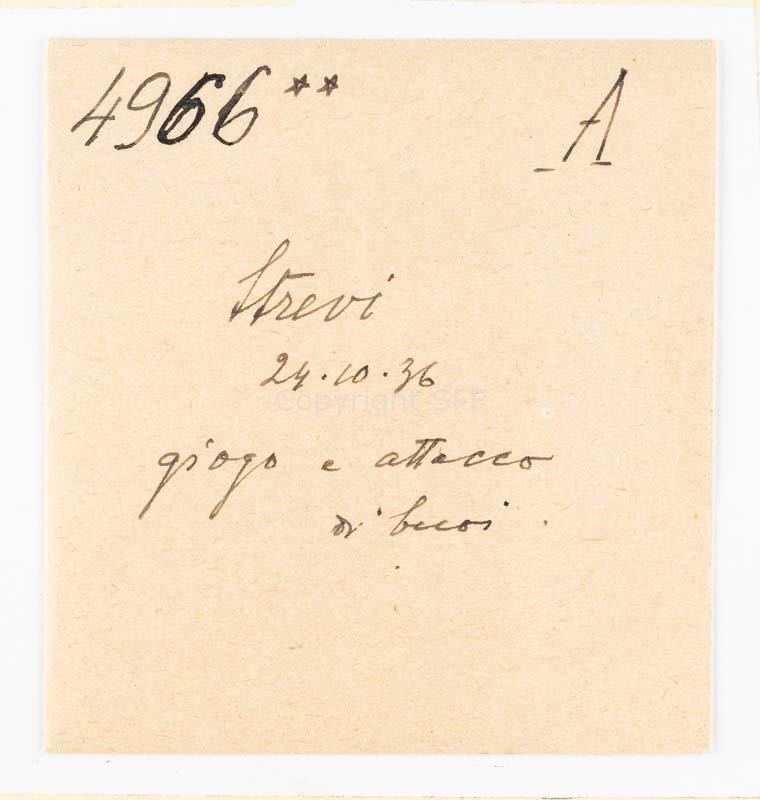 4966** A
Strevi
24.10.36
Copyright SFF
giogo e attacco
di buoi.